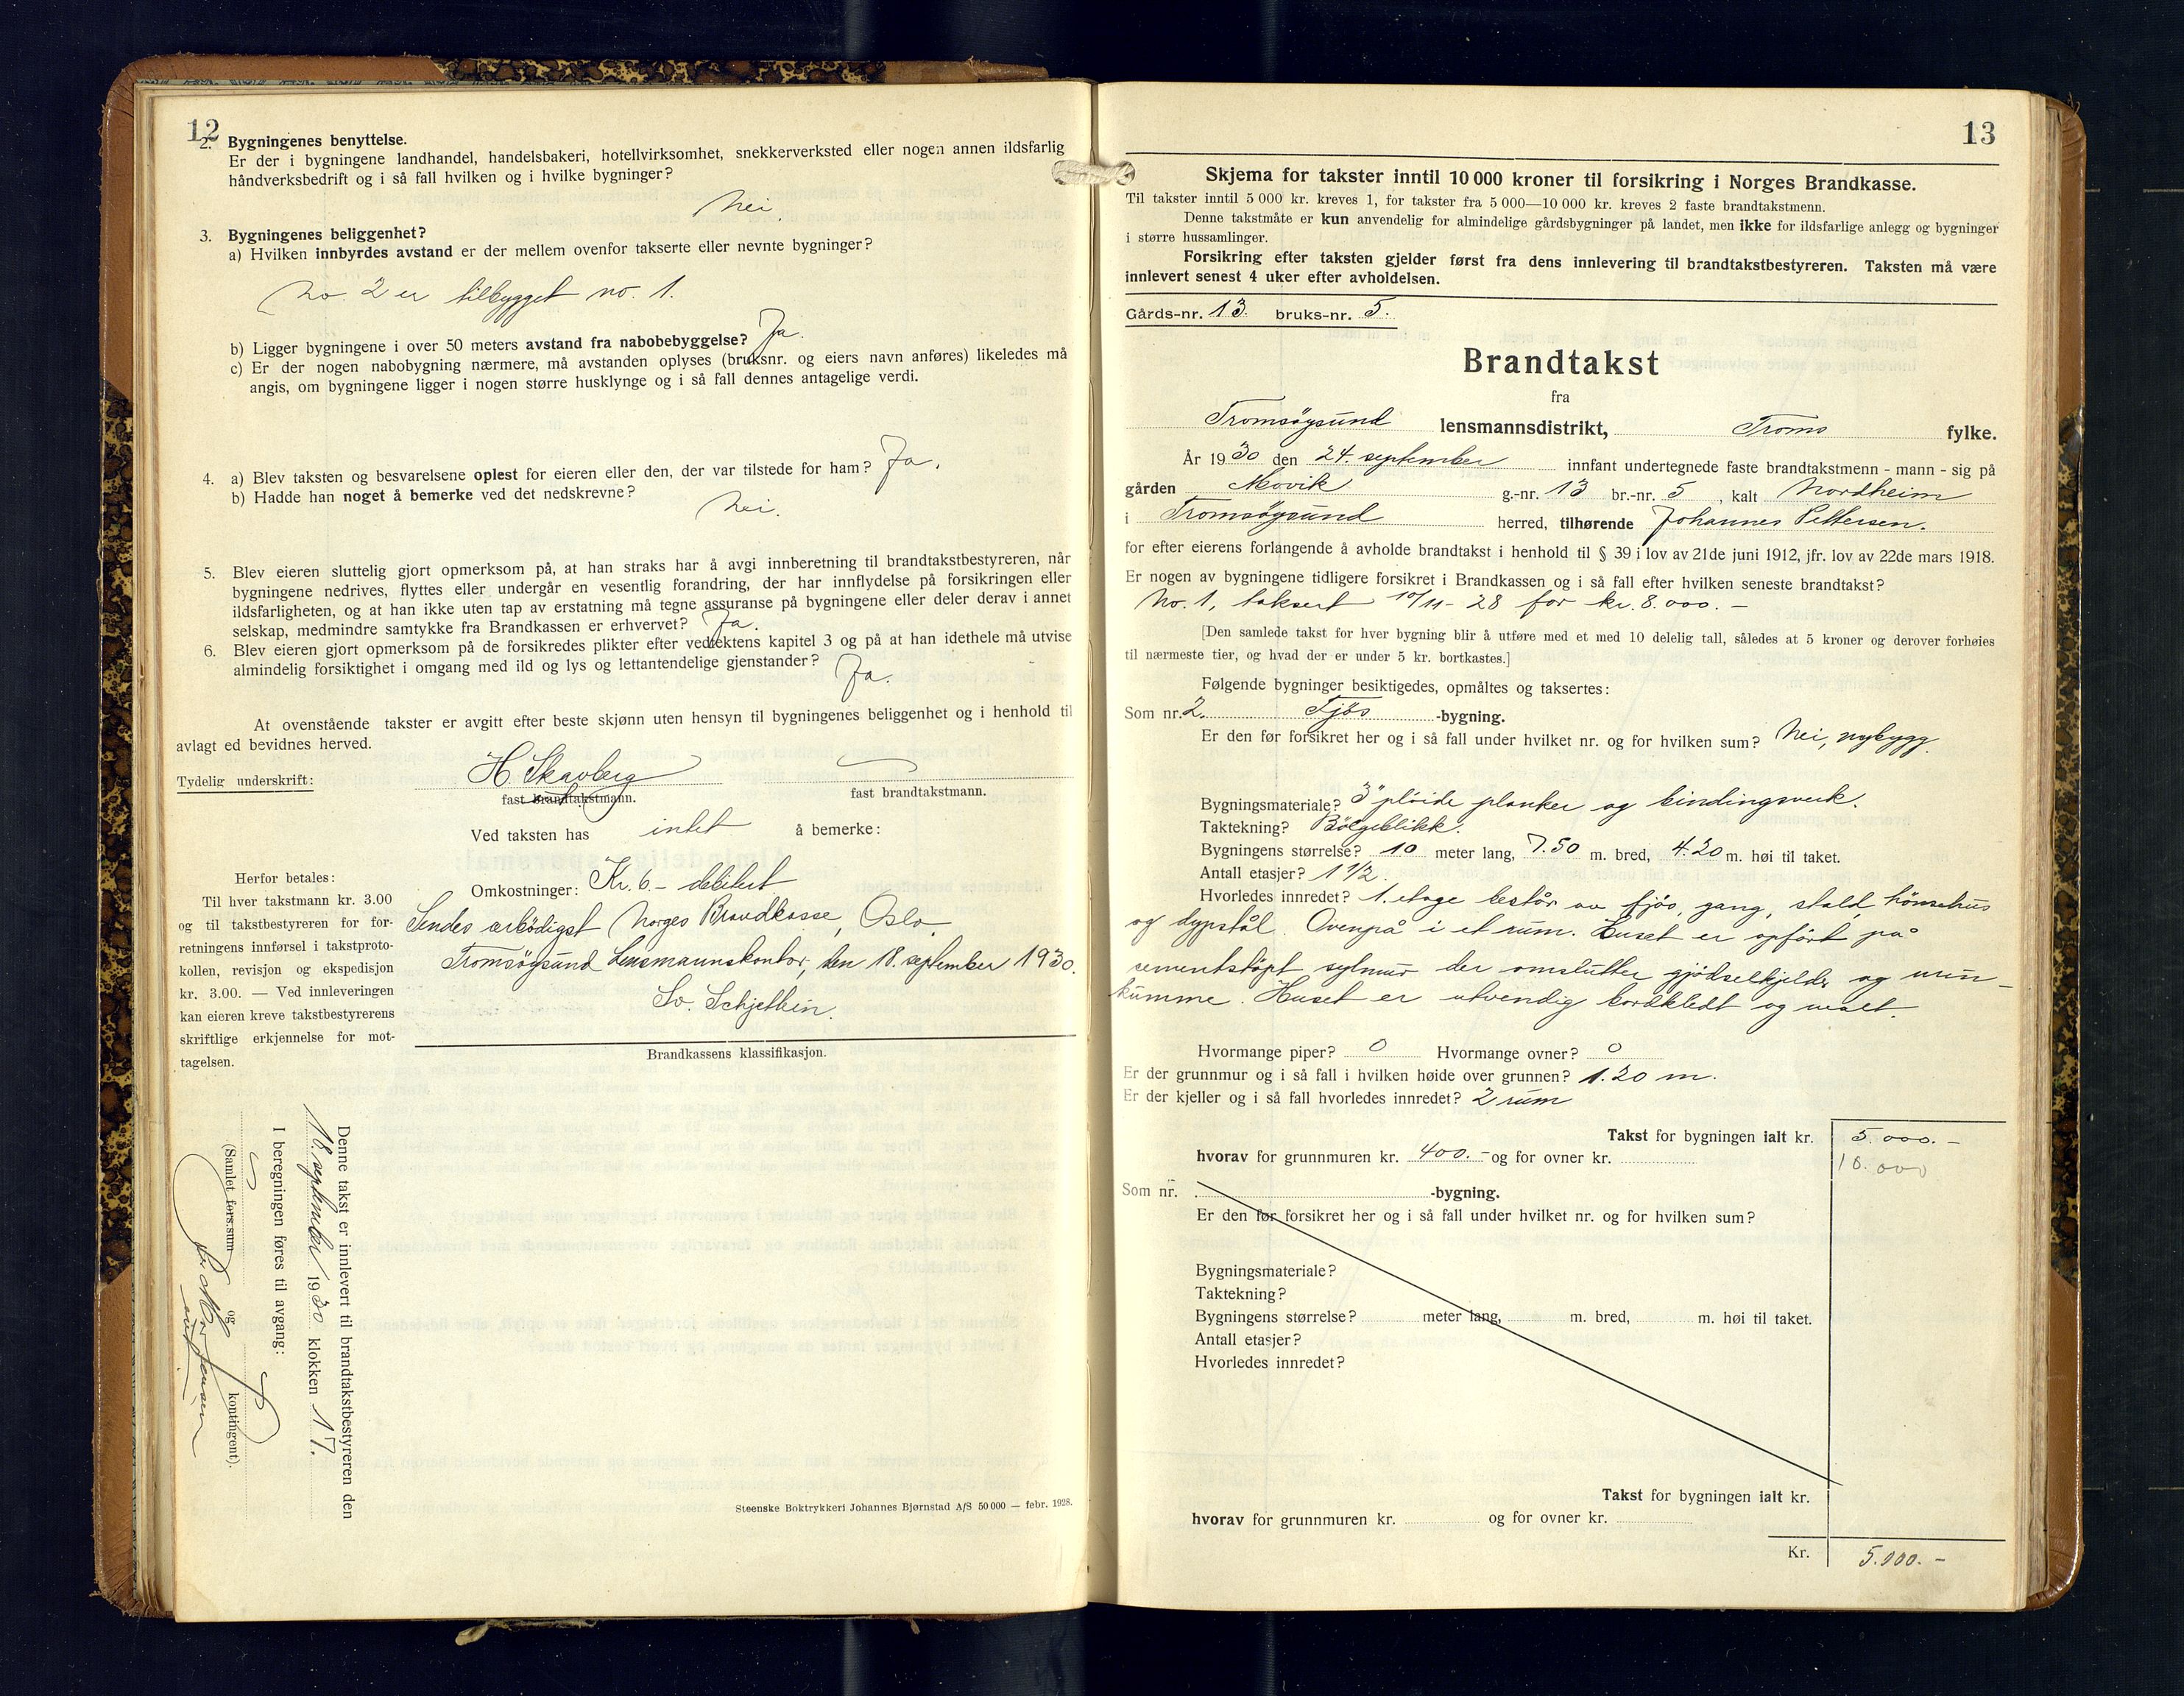 12
2. Bygningenes benyttelse.
Er der i bygningene landhandel, handelsbakeri, hotellvirksomhet, snekkerverksted eller nogen annen ildsfarlig
håndverksbedrift og i så fall hvilken og i hvilke bygninger?
Nei.
3. Bygningenes beliggenhet?
a) Hvilken innbyrdes avstand er der mellem ovenfor takserte eller nevnte bygninger?
No. 2 er tilbygget no. 1.
b) Ligger bygningene i over 50 meters avstand fra nabobebyggelse? Ja.
c) Er der nogen nabobygning nærmere, må avstanden oplyses (bruksnr. og eiers navn anføres) likeledes må
angis, om bygningene ligger i nogen større husklynge og i så fall dennes antagelige verdi.
4. a) Blev taksten og besvarelsene oplest for eieren eller den, der var tilstede for ham? Ja.
b) Hadde han noget å bemerke ved det nedskrevne?
Nei.
5. Blev eieren sluttelig gjort opmerksom på, at han straks har å avgi innberetning til brandtakstbestyreren, når
bygningene nedrives, flyttes eller undergår en vesentlig forandring, der har innflydelse på forsikringen eller
ildsfarligheten, og at han ikke uten tap av erstatning må tegne assuranse på bygningene eller deler derav i annet
selskap, medmindre samtykke fra Brandkassen er erhvervet? Ja.
6. Blev eieren gjort opmerksom på de forsikredes plikter efter vedtektens kapitel 3 og på at han idethele må utvise
almindelig forsiktighet i omgang med ild og lys og lettantendelige gjenstander? Ja.
At ovenstående takster er avgitt efter beste skjønn uten hensyn til bygningenes beliggenhet og i henhold til
avlagt ed bevidnes herved.
Tydelig underskrift: H Skavberg
fast brandtakstmann. fast brandtakstmann.
Ved taksten has intet å bemerke:
Omkostninger: Kr. 6.- debitert
Sendes ærbödigst Norges Brandkasse, Oslo.
Tromsöysund Lensmannskontor, den 18. september 1930.
Sv. Schjelbein.
Herfor betales:
Til hver takstmann kr. 3.00
og til takstbestyreren for for-
retningens innførsel i takstproto-
kollen, revisjon og ekspedisjon
kr. 3.00. — Ved innleveringen
kan eieren kreve takstbestyrerens
skriftlige erkjennelse for mot-
tagelsen.
Brandkassens klassifikasjon.
Denne takst er innlevert til brandtakstbestyreren den
18. september 1930 klokken 17.
I beregningen føres til avgang:
(Samlet fors.sum og kontingent).
Steenske Boktrykkeri Johannes Bjørnstad A/S 50 000 — febr. 1928.
13
Skjema for takster inntil 10 000 kroner til forsikring i Norges Brandkasse.
Til takster inntil 5 000 kr. kreves 1, for takster fra 5 000—10 000 kr. kreves 2 faste brandtakstmenn.
Denne takstmåte er kun anvendelig for almindelige gårdsbygninger på landet, men ikke for ildsfarlige anlegg og bygninger
i større hussamlinger.
Forsikring efter taksten gjelder først fra dens innlevering til brandtakstbestyreren. Taksten må være
innlevert senest 4 uker efter avholdelsen.
Gårds-nr. 13. bruks-nr. 5.
Brandtakst
fra
Tromsöysund lensmannsdistrikt, Troms fylke.
År 1930 den 24. september innfant undertegnede faste brandtakstmenn - mann - sig på
gården Movik g.-nr. 13 br.-nr. 5, kalt Nordheim
i Tromsöysund herred, tilhørende Johannes Pettersen.
for efter eierens forlangende å avholde brandtakst i henhold til § 39 i lov av 21de juni 1912, jfr. lov av 22de mars 1918.
Er nogen av bygningene tidligere forsikret i Brandkassen og i så fall efter hvilken seneste brandtakst?
No. 1, taksert 10/11-28 for kr. 8.000.-
[Den samlede takst for hver bygning blir å utføre med et med 10 delelig tall, således at 5 kroner og derover forhøies
til nærmeste tier, og hvad der er under 5 kr. bortkastes.]
Følgende bygninger besiktigedes, opmåltes og taksertes:
Som nr. 2. Fjös -bygning.
Er den før forsikret her og i så fall under hvilket nr. og for hvilken sum? Nei, nybygg.
Bygningsmateriale? 3" plöide planker og bindingsverk.
Taktekning? Bölgeblikk.
Bygningens størrelse? 10 meter lang, 7.50 m. bred, 4.20 m. høi til taket.
Antall etasjer? 1 1/2.
Hvorledes innredet? 1. etage består av fjös, gang, stald, hönsehus
og dypstål. Ovenpå i et rum. Huset er opfört på
sementstöpt sylmur der omslutter gjödselkjelder og urin-
kumme. Huset er utvendig bordkledt og malt.
Hvormange piper? 0 Hvormange ovner? 0
Er der grunnmur og i så fall i hvilken høide over grunnen? 1.20 m.
Er der kjeller og i så fall hvorledes innredet? 2 rum
Takst for bygningen ialt kr. 5.000.-
hvorav for grunnmuren kr. 400.- og for ovner kr.
Som nr. -bygning.
Er den før forsikret her og i så fall under hvilket nr. og for hvilken sum?
Bygningsmateriale?
Taktekning?
Bygningens størrelse? meter lang, m. bred, m. høi til taket.
Antall etasjer?
Hvorledes innredet?
Takst for bygningen ialt kr.
hvorav for grunnmuren kr. og for ovner kr.
Kr. 5.000.-